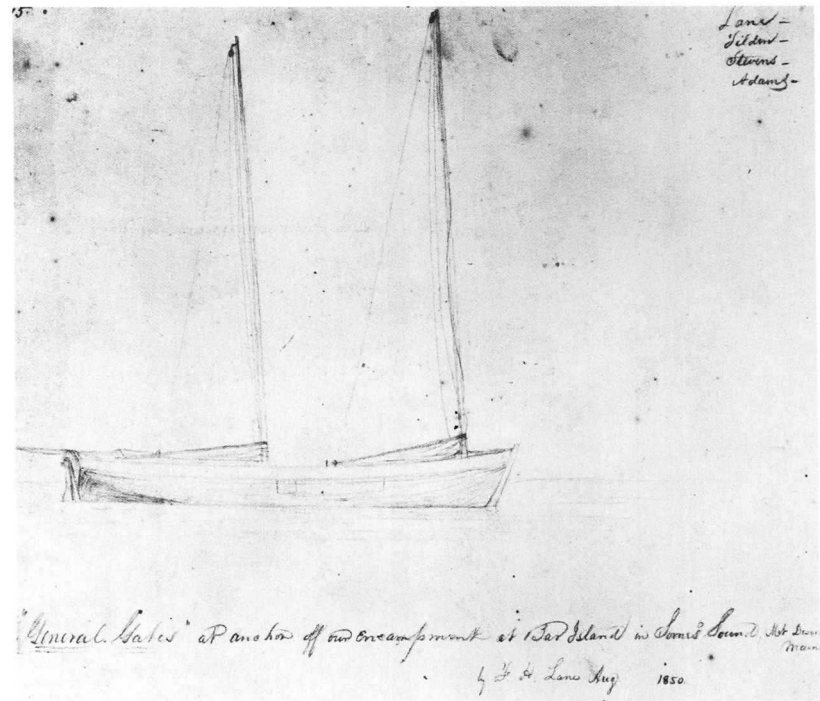 15.
Lane -
Tilden -
Stevens -
Adams -
"General Gates" at anchor off our encampment at Bar Island in Somes Sound, Mt Deser
Maine
by F. H. Lane Aug 1850.